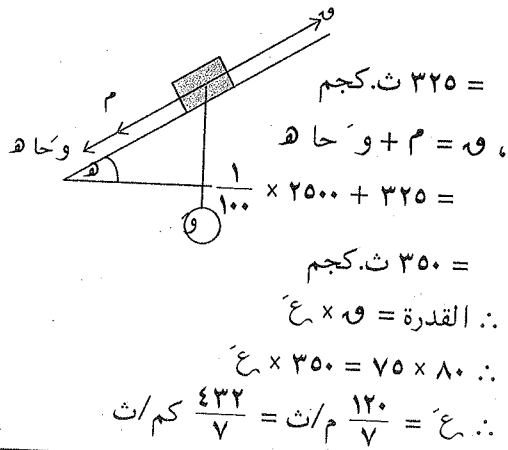 ق
م
وَ حا هـ
هـ
وَ
= ٣٢٥ ث.كجم
، ق = م + وَ حا هـ
= ٣٢٥ + ٢٥٠٠ × ١/١٠٠
= ٣٥٠ ث.كجم
∴ القدرة = ق × عَ
∴ ٨٠ × ٧٥ = ٣٥٠ × عَ
∴ عَ = ١٢٠/٧ م/ث = ٤٣٢/٧ كم/ث